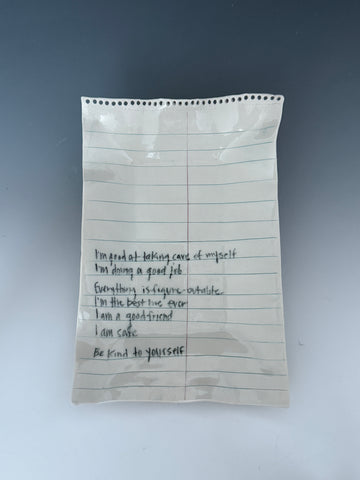 I'm good at taking care of myself
I'm doing a good job
Everything is figure-outable
I'm the best ever
I am a good friend
I am safe
Be kind to yourself